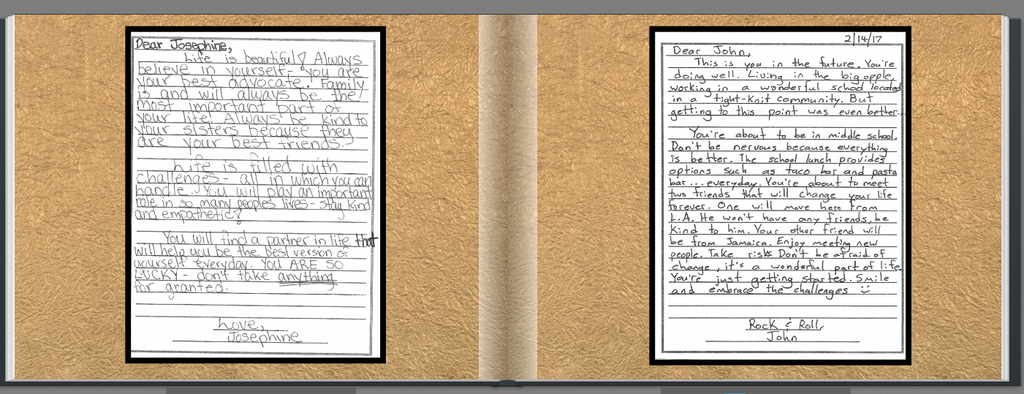 Dear Josephine,
Life is beautiful! Always
believe in yourself- you are
your best advocate. Family
is and will always be the
most important part of
your life! Always be kind to
your sisters because they
are your best friends.
Life is filled with
challenges - all in which you can
handle. You will play an important
role in so many peoples lives - stay kind
and empathetic!
You will find a partner in life that
will help you be the best version of
yourself everyday. YOU ARE SO
LUCKY - don't take anything
for granted.
Love,
Josephine
2/14/17
Dear John,
This is you in the future. You're
doing well. Living in the big apple,
working in a wonderful school located
in a tight-knit community. But
getting to this point was even better...
You're about to be in middle school.
Don't be nervous because everything
is better. The school lunch provides
options such as taco bar and pasta
bar...everyday. You're about to meet
two friends that will change your life
forever. One will move here from
L.A. He won't have any friends, be
kind to him. Your other friend will
be from Jamaica. Enjoy meeting new
people. Take risks. Don't be afraid of
change, it's a wonderful part of life.
You're just getting started. Smile
and embrace the challenges :)
Rock & Roll,
John